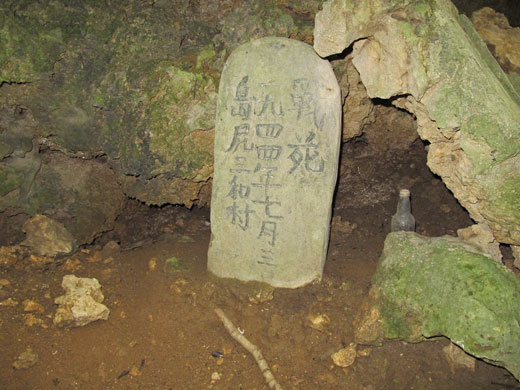 戰苑
一九四四年七月三
島尻三和村